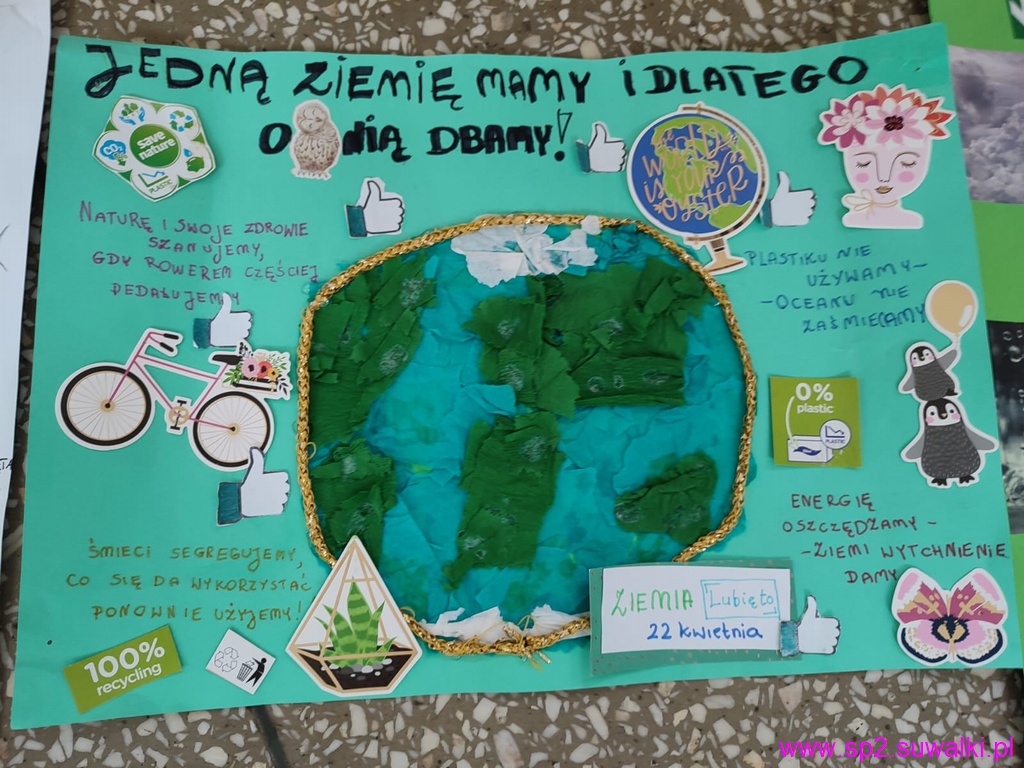 JEDNĄ ZIEMIĘ MAMY I DLATEGO
O NIĄ DBAMY!
save
nature
CO₂
PLASTIC
WORLD
IS YOUR
OYSTER
NATURĘ I SWOJE ZDROWIE
SZANUJEMY,
GDY ROWEREM CZĘŚCIEJ
PEDAŁUJEMY
PLASTIKU NIE
UŻYWAMY-
-OCEANU NIE
ZAŚMIECAMY
0%
plastic
PLASTIC
ENERGIĘ
OSZCZĘDZAMY-
-ZIEMI WYTCHNIENIE
DAMY
ŚMIECI SEGREGUJEMY,
CO SIĘ DA WYKORZYSTAĆ
PONOWNIE UŻYJEMY!
100%
recycling
ZIEMIA Lubię to
22 kwietnia
www.sp2.suwalki.pl